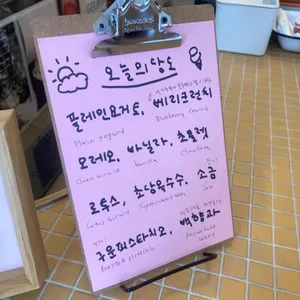 오늘의당도
플레인요거트, 베리크런치
Plain yogurt
Blueberry Crunch
오레오, 바닐라, 초콜렛
Vanilla
Chocolate
로투스, 초당옥수수, 소금
Lotus biscuit
Salt
구운피스타치오, 백향과
Roasted pistachio